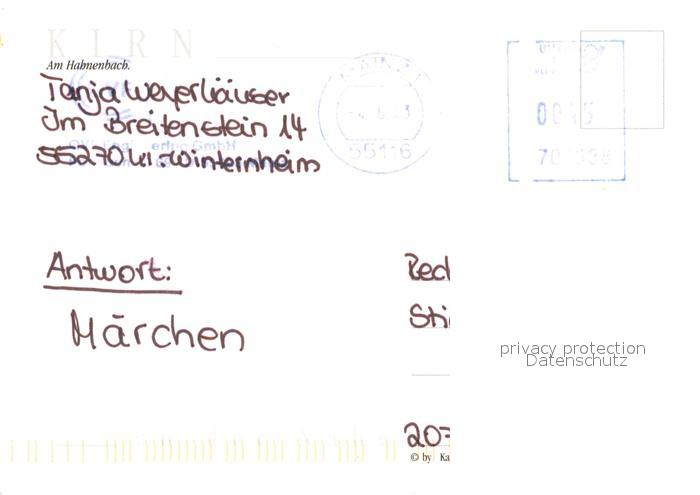 KIRN
Am Hahnenbach.
Tanja Weyerhäuser
Im Breitenstein 14
55270 Kl.-Winternheim
GmbH
MAINZ 1
55116
Antwort:
Märchen
Red
Sti
privacy protection
Datenschutz
207
© by Ka